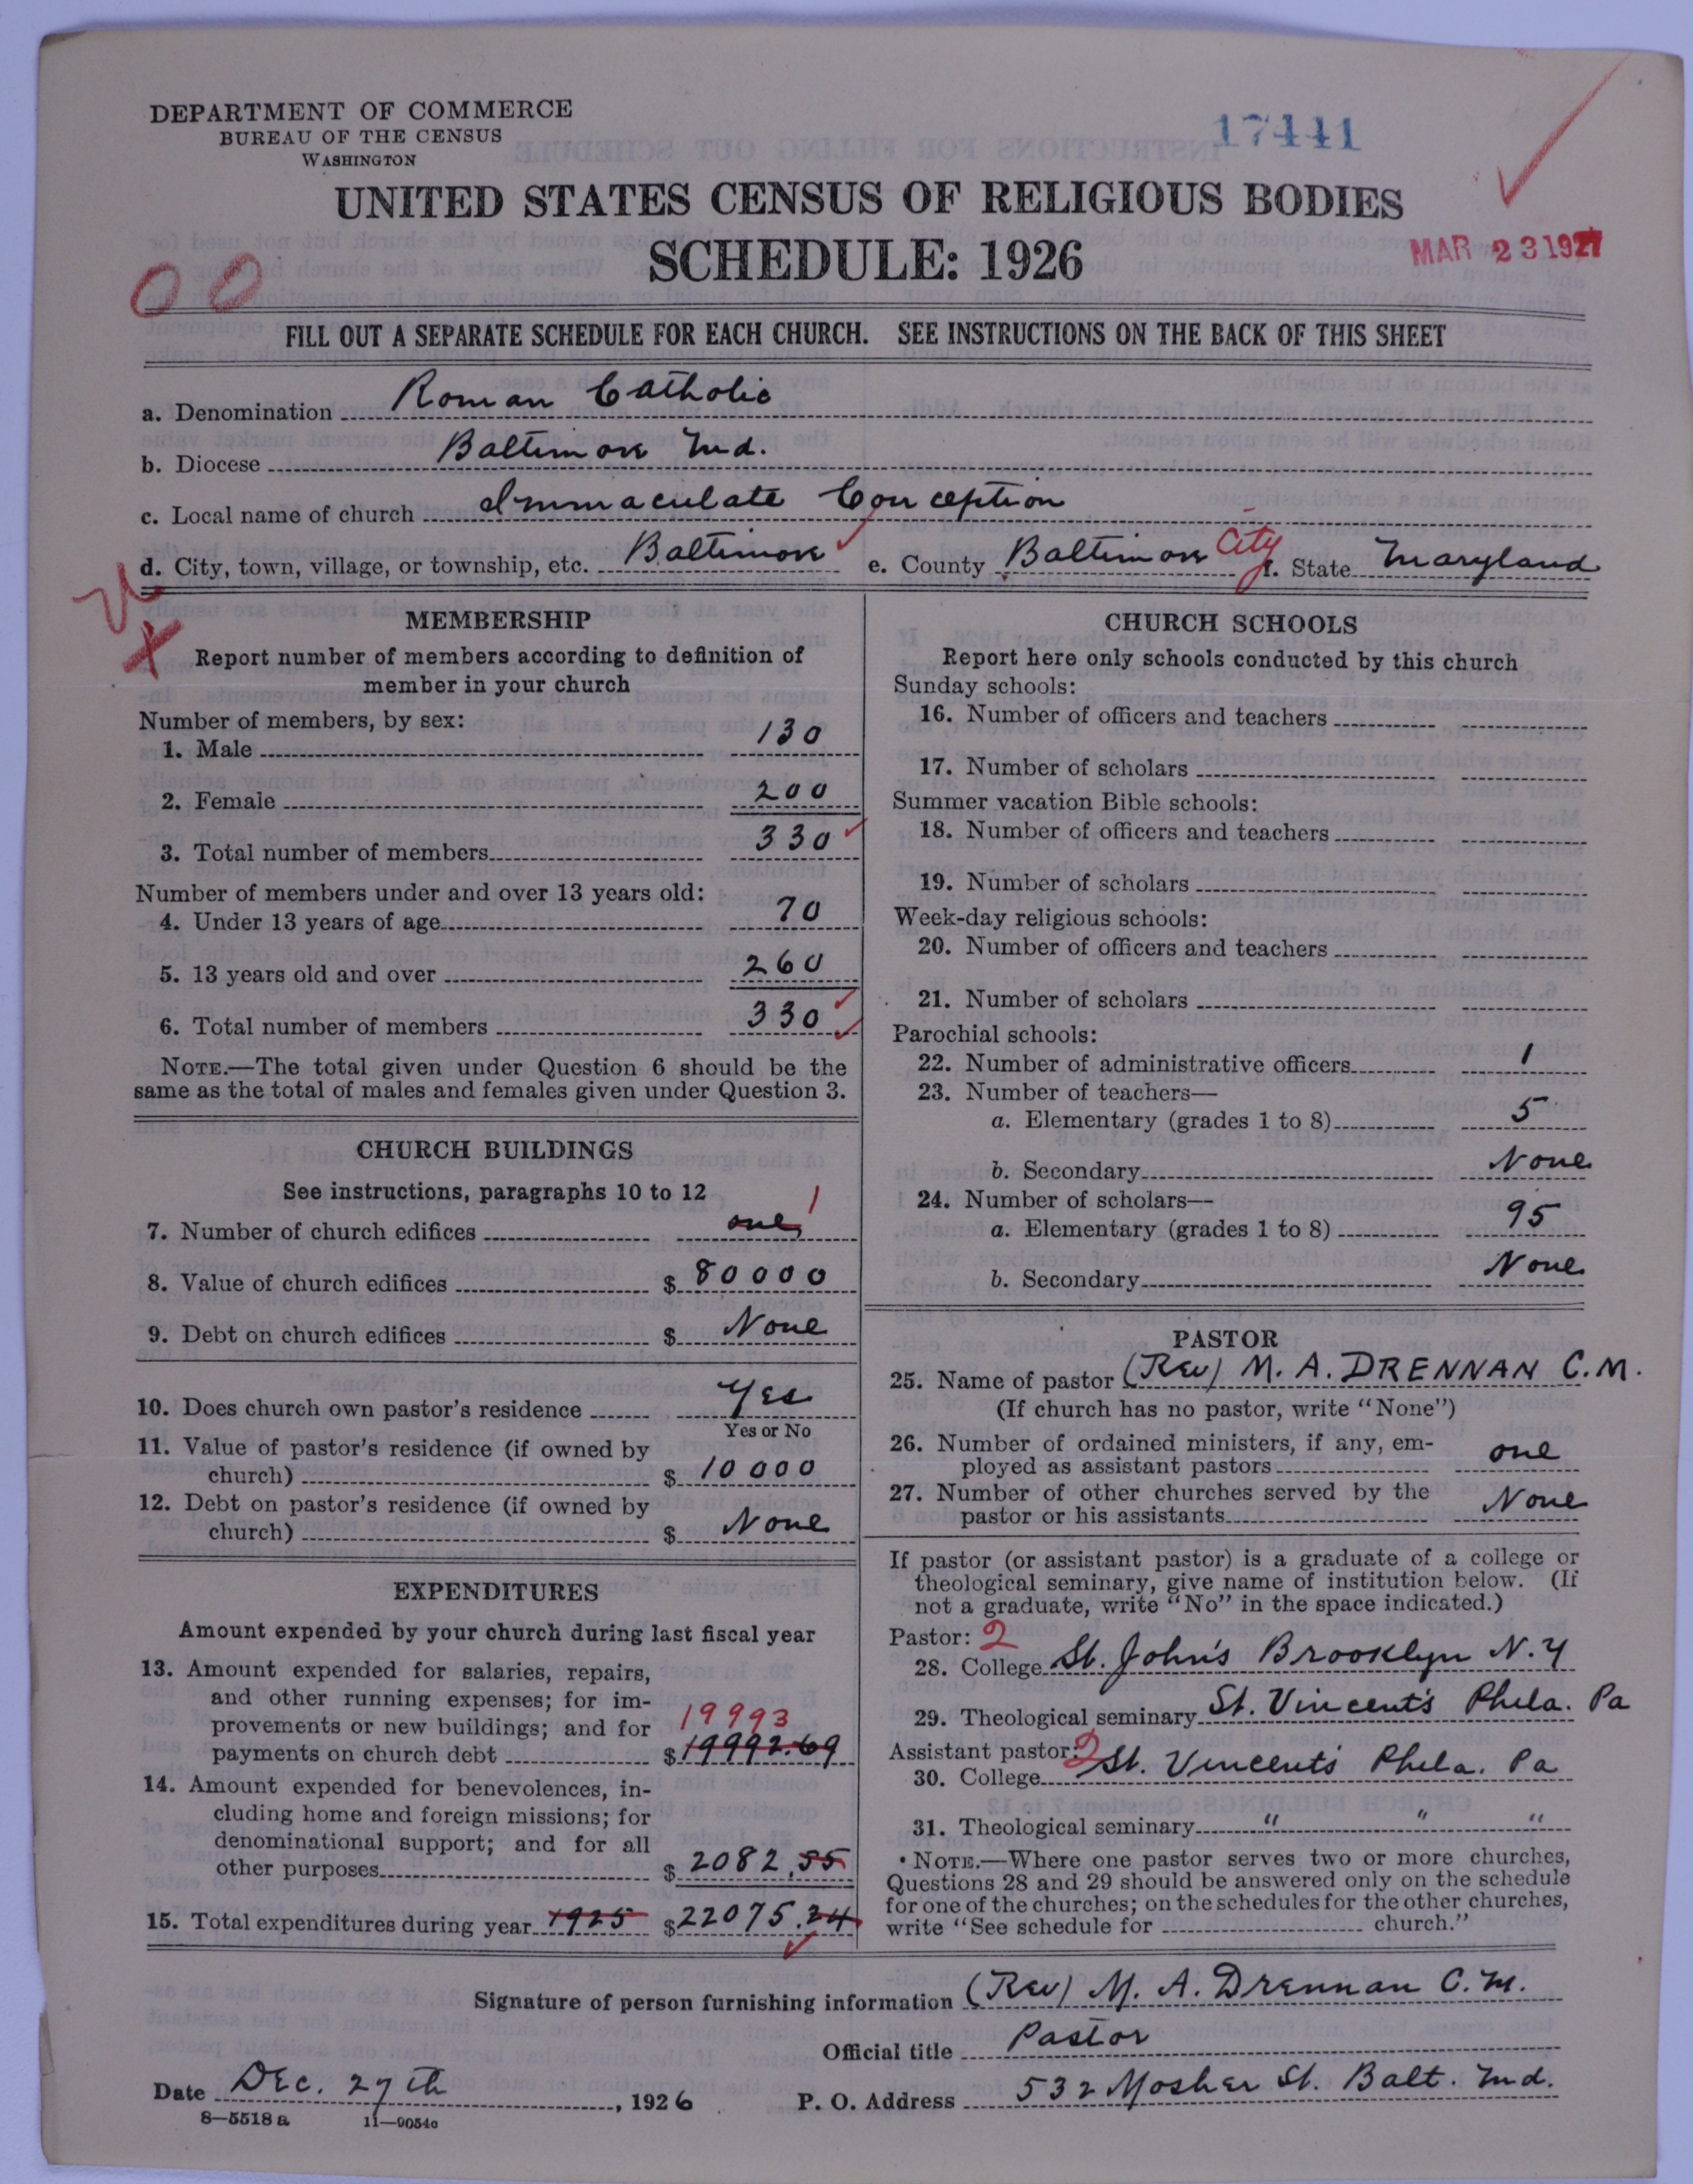 DEPARTMENT OF COMMERCE
BUREAU OF THE CENSUS
WASHINGTON
17441
UNITED STATES CENSUS OF RELIGIOUS BODIES
SCHEDULE: 1926
MAR 23 1927
00
FILL OUT A SEPARATE SCHEDULE FOR EACH CHURCH. SEE INSTRUCTIONS ON THE BACK OF THIS SHEET
a. Denomination Roman Catholic
b. Diocese Baltimore Md.
c. Local name of church Immaculate Conception
d. City, town, village, or township, etc. Baltimore e. County Baltimore City f. State Maryland
MEMBERSHIP
Report number of members according to definition of
member in your church
Number of members, by sex:
1. Male 130
2. Female 200
3. Total number of members 330
Number of members under and over 13 years old:
4. Under 13 years of age 70
5. 13 years old and over 260
6. Total number of members 330
NOTE.—The total given under Question 6 should be the
same as the total of males and females given under Question 3.
CHURCH BUILDINGS
See instructions, paragraphs 10 to 12
7. Number of church edifices one 1
8. Value of church edifices $ 80000
9. Debt on church edifices $ None
10. Does church own pastor's residence Yes
Yes or No
11. Value of pastor's residence (if owned by
church) $ 10000
12. Debt on pastor's residence (if owned by
church) $ None
EXPENDITURES
Amount expended by your church during last fiscal year
13. Amount expended for salaries, repairs,
and other running expenses; for im-
provements or new buildings; and for 19993
payments on church debt $ 19992.69
14. Amount expended for benevolences, in-
cluding home and foreign missions; for
denominational support; and for all
other purposes $ 2082.55
15. Total expenditures during year 1925 $ 22075.24
CHURCH SCHOOLS
Report here only schools conducted by this church
Sunday schools:
16. Number of officers and teachers
17. Number of scholars
Summer vacation Bible schools:
18. Number of officers and teachers
19. Number of scholars
Week-day religious schools:
20. Number of officers and teachers
21. Number of scholars
Parochial schools:
22. Number of administrative officers 1
23. Number of teachers—
a. Elementary (grades 1 to 8) 5
b. Secondary None
24. Number of scholars—
a. Elementary (grades 1 to 8) 95
b. Secondary None
PASTOR
25. Name of pastor (Rev) M. A. DRENNAN C.M.
(If church has no pastor, write "None")
26. Number of ordained ministers, if any, em-
ployed as assistant pastors one
27. Number of other churches served by the
pastor or his assistants None
If pastor (or assistant pastor) is a graduate of a college or
theological seminary, give name of institution below. (If
not a graduate, write "No" in the space indicated.)
Pastor: 2
28. College St. John's Brooklyn N.Y
29. Theological seminary St. Vincent's Phila. Pa
Assistant pastor: 2
30. College St. Vincent's Phila. Pa
31. Theological seminary " " "
NOTE.—Where one pastor serves two or more churches,
Questions 28 and 29 should be answered only on the schedule
for one of the churches; on the schedules for the other churches,
write "See schedule for church."
Signature of person furnishing information (Rev) M. A. Drennan C.M.
Official title Pastor
Date Dec. 27th, 1926 P. O. Address 532 Mosher St. Balt. Md.
8—5518 a 11—9054c